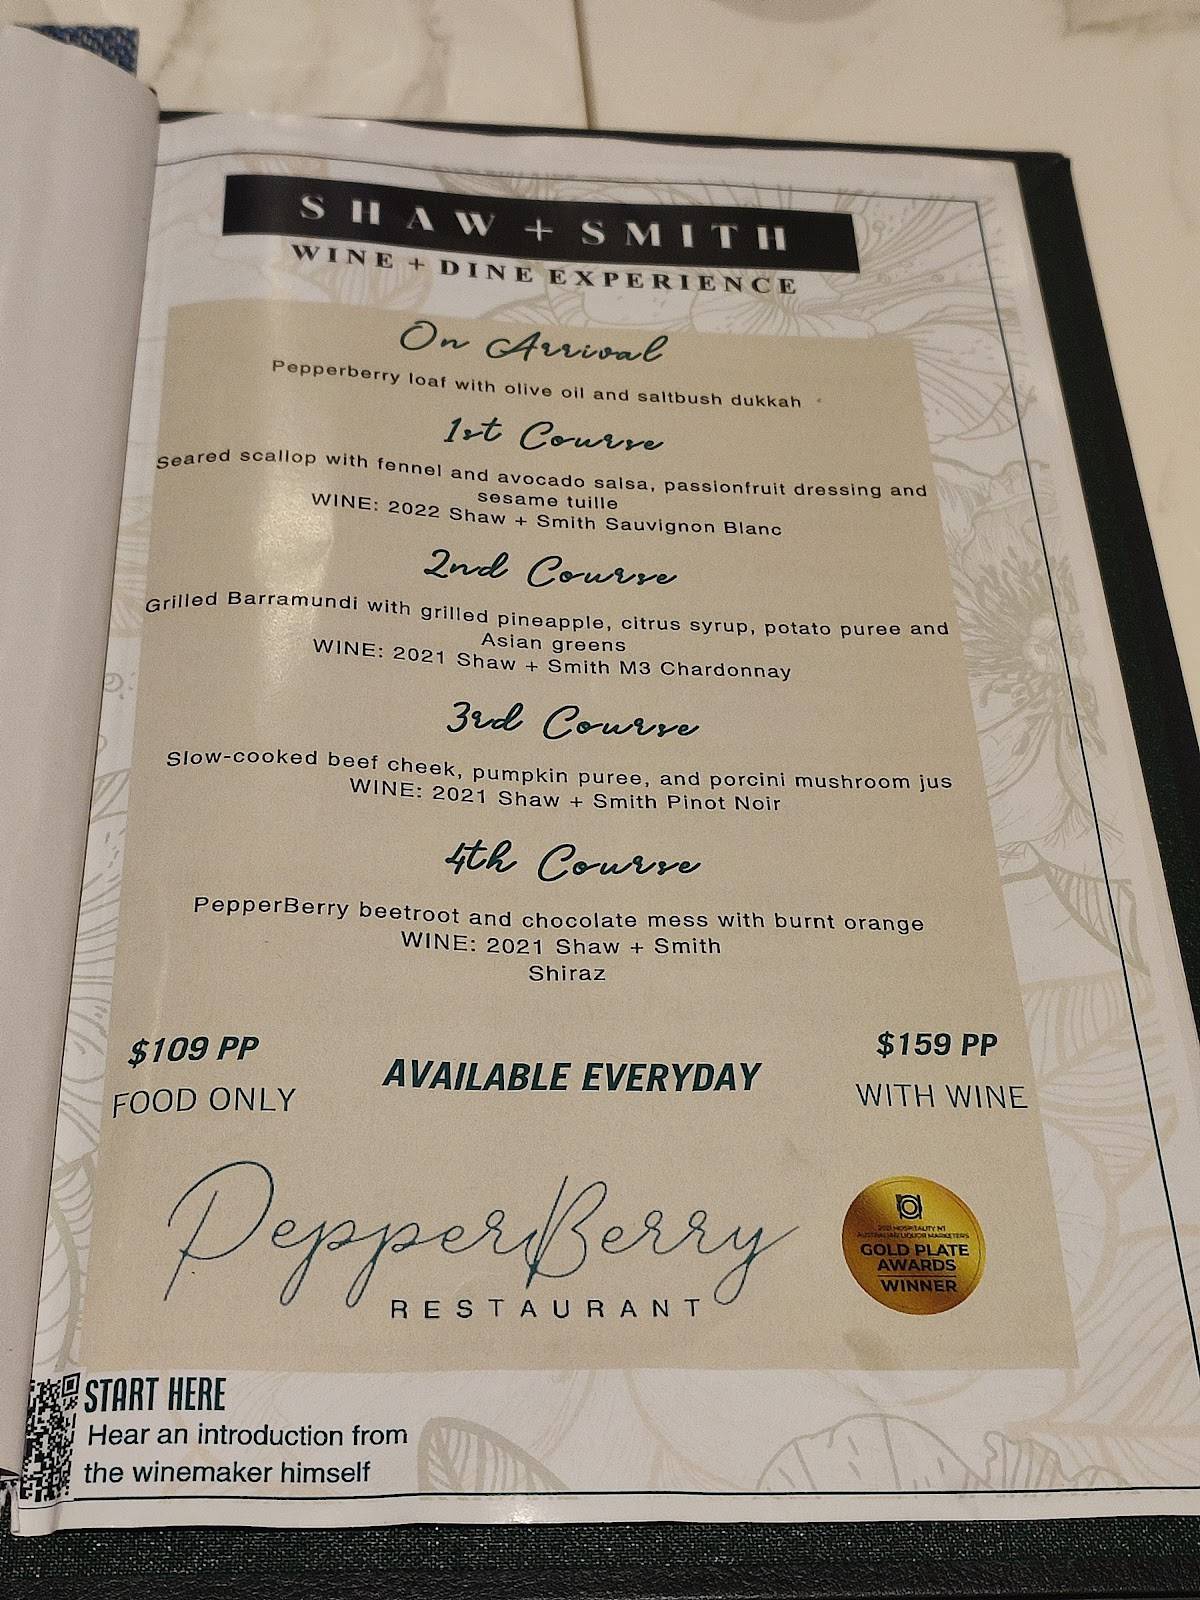 SHAW + SMITH
WINE + DINE EXPERIENCE
On Arrival
Pepperberry loaf with olive oil and saltbush dukkah
1st Course
Seared scallop with fennel and avocado salsa, passionfruit dressing and
sesame tuille
WINE: 2022 Shaw + Smith Sauvignon Blanc
2nd Course
Grilled Barramundi with grilled pineapple, citrus syrup, potato puree and
Asian greens
WINE: 2021 Shaw + Smith M3 Chardonnay
3rd Course
Slow-cooked beef cheek, pumpkin puree, and porcini mushroom jus
WINE: 2021 Shaw + Smith Pinot Noir
4th Course
PepperBerry beetroot and chocolate mess with burnt orange
WINE: 2021 Shaw + Smith
Shiraz
$109 PP
FOOD ONLY
AVAILABLE EVERYDAY
$159 PP
WITH WINE
PepperBerry
RESTAURANT
2021 HOSPITALITY NT
AUSTRALIAN LIQUOR MARKETERS
GOLD PLATE
AWARDS
WINNER
START HERE
Hear an introduction from
the winemaker himself